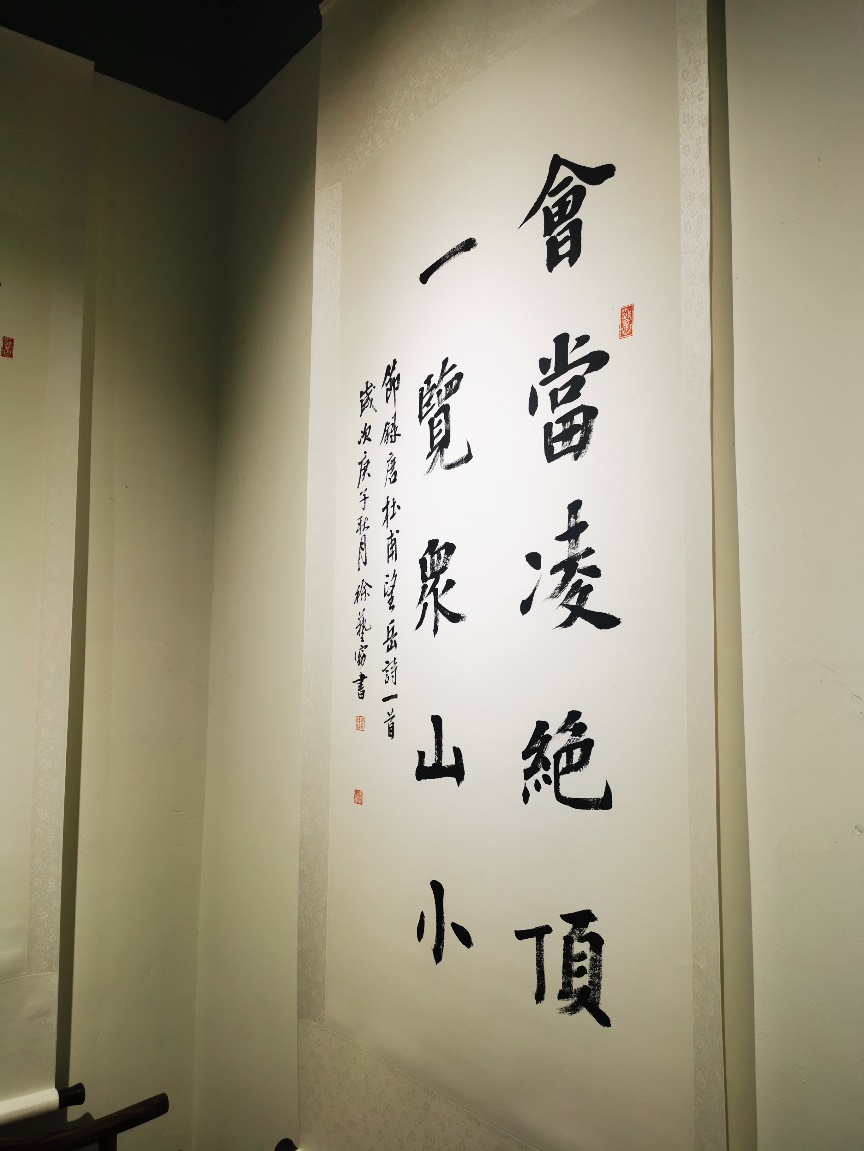 會當凌絶頂
一覽衆山小
節録唐杜甫望岳詩一首
歲次庚子秋月徐藝寧書